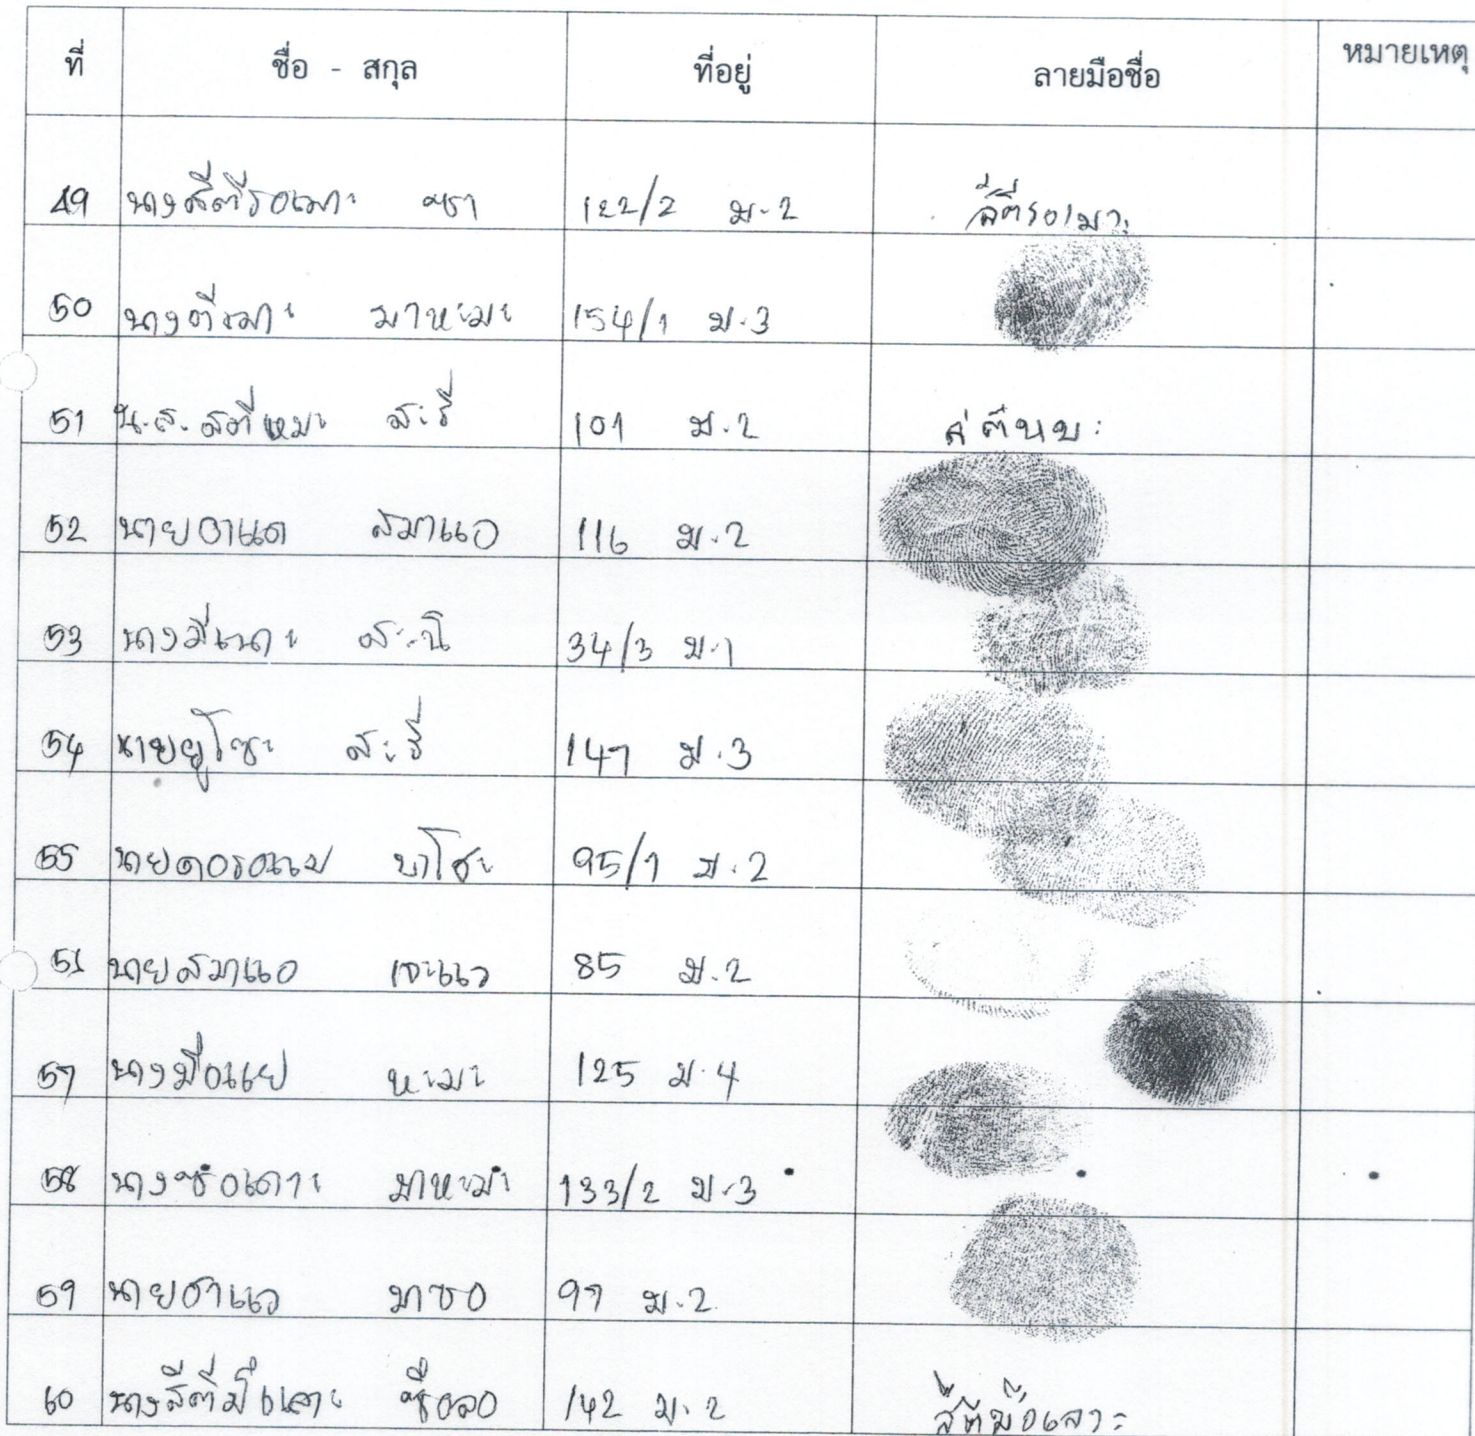 ที่ ชื่อ - สกุล ที่อยู่ ลายมือชื่อ หมายเหตุ
49 นางสีตีรอเมาะ ซา 122/2 ม.2 สีตีรอเมาะ
50 นางตีเมาะ มาหะมะ 154/1 ม.3
51 น.ส. สตีเหมะ สะรี 101 ม.2
52 นายอาแด สมาแอ 116 ม.2
53 นางมีเนาะ สะนิ 34/3 ม.1
54 นายยูโซะ สะรี 147 ม.3
55 นายดอรอแม บาโซะ 95/1 ม.2
นายสมาแอ เจะแว 85 ม.2
57 นางมือแย หะมะ 125 ม.4
58 นางซอเดาะ มาหะมะ 133/2 ม.3
59 นายอาแว มาซอ 97 ม.2
60 นางสีตีมือเลาะ ซือลอ 142 ม.2 สีตีมือเลาะ